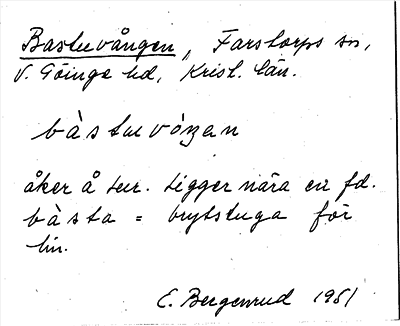 Bastuvången, Farstorps sn,
V. Göinge hd, Krist. län.
bàstuvóŋan
åker å lur. Ligger nära en fd.
bàsta = brytstuga för
lin.
E. Bergenrud 1951